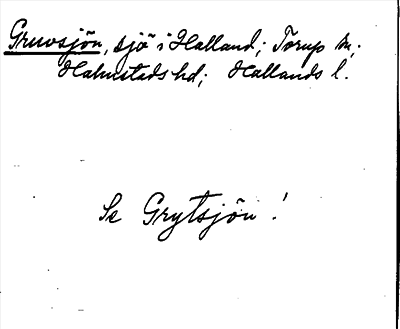 Gruvsjön, sjö i Halland; Torup sn;
Halmstads hd; Hallands l.
Se Grytsjön!